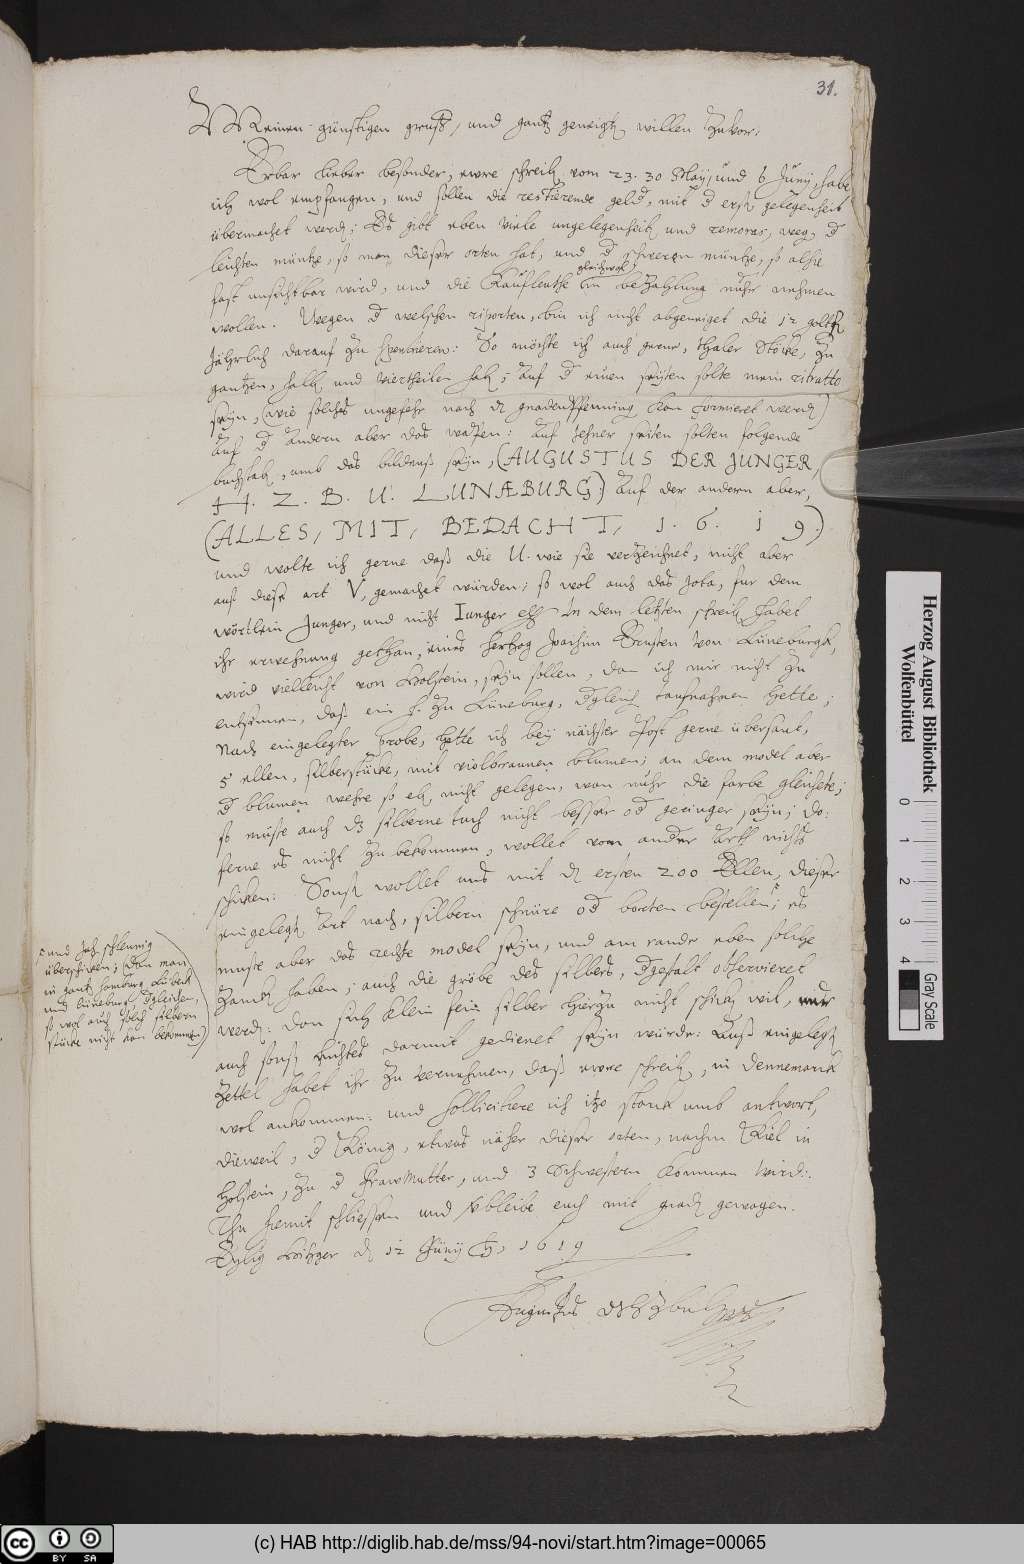 31.
Meinen günstigen gruß, und gantz geneigt willen zuvor;
Erbar lieber besonder, ewre schreib. vom 23. 30 May, und 6 Junij, habe
ich wol empfangen, und sollen die restierende geld, mit d erst gelegenheit
übermachet werd; Es gibt eben viele ungelegenheit und remoras, weg d
leichten müntze, so man dieser orten hat, und d schweren müntze, so alhie
gleichwol
fast unsichtbar wird, und die Kaufleuthe in bezahlung nuhr nehmen
wollen. Wegen d welschen risorten, bin ich nicht abgeneiget die 12 goltg
Jährlich darauf zu spendieren: So möchte ich auch gerne, thaler Stöcke, zu
gantzen, halb und viertheilen hab; Auf d einen seiten solte mein ritratto
seyn, (wie solches ungefehr nach d gnadenpfenning kan formieret werd)
Auf d andern aber das wapen: auf jehner seiten solten folgende
buchstab, umb das bildnuß seyn, (AUGUSTUS DER JUNGER,
H. Z. B. U. LUNÆBURG:) Auf der andern aber,
(ALLES, MIT, BEDACHT, 1. 6. 1 9.)
und wolte ich gerne daß die U. wie sie verzeichnet, nicht aber
auf diese art V, gemachet würden; so wol auch das Jota, für dem
wörtlein Junger, und nicht Iunger etc In dem letzten schreib habet
ihr erwehnung gethan, eines Hertzog Joachim Ernsten von Lüneburgk,
wird villeicht von Holstein, seyn sollen, dan ich mir nicht zu
entsinnen, daß ein h. zu Lüneburg, dgleich taufnahmen hette;
Nach eingelegter probe, hette ich bey nächster Post gerne übersant,
5 ellen, silberstücke, mit violbraunen blumen; an dem model aber
d blumen wehre so eb nicht gelegen, wan nuhr die farbe gleichete;
so müste auch dz silberne tuch nicht besser od geringer seyn; do:
ferne es nicht zu bekommen, wollet von ander Arth nichts
schicken: Sonst wollet uns mit d ersten 200 Ellen, dieser
eingelegt Art nach, silbern schnüre od borten bestellen; es
muste aber das rechte model seyn, und am rande eben solche
Zanck haben; auch die gröbe des silbers, dgestalt observieret
werd: dan sich klein fein silber hierzu nicht schick wil, nuhr
auch sonst nichtes darmit gedienet seyn würde: Auß eingelegt
Zettel habet ihr zu vernehmen, daß ewre schreib, in Dennemarck
wol ankommen: und sollicitiere ich itzo starck umb antwort,
dieweil, d König, etwas näher dieser orten, nachm Kiel in
Holstein, zu d FrawMutter, und 3 Schwestern kommen wird:.
Thu hiemit schliessen und verbleibe euch mit gnad gewogen.
Eylig Hitzger d 12 Junij Ao 1619
Augustus
und fast schleunig
überschicken; (dan man
in gantz Hamburg Lübeck
und Lüneburg dgleichen,
so wol auch solch silbern
stücke nicht kan bekommen)
Herzog August Bibliothek
Wolfenbüttel
0 1 2 3 4
Gray Scale
cc BY SA
(c) HAB http://diglib.hab.de/mss/94-novi/start.htm?image=00065